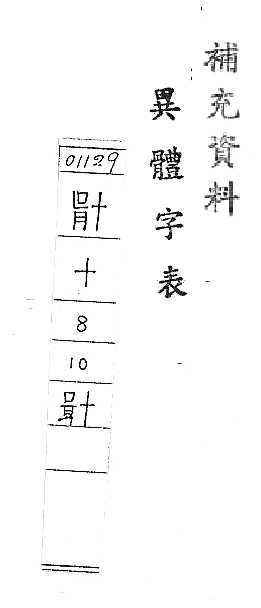 補充資料
異體字表
01129
十
8
10